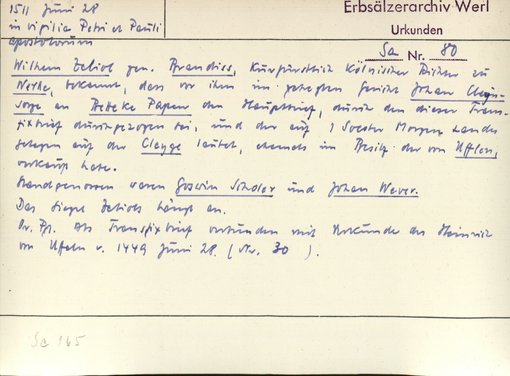 1511 Juni 28
in vigilia Petri et Pauli
apostolorum
Erbsälzerarchiv Werl
Urkunden
Sa Nr. 80
Wilhelm Zeliol gen. Brandiss, Kurfürstlich Kölnischer Richter zu
Werke, bekennt, dass vor ihm im gehegten Gericht Johan Cleyn-
sorge an Betteke Papen den Hauptbrief, durch den dieser Trans-
fixbrief durchgezogen sei, und der auf 1 Soester Morgen Landes
gelegen auf der Cleyge lautet, ehemals im Besitz der von Uffeln,
verkauft habe.
Standgenossen waren Goswin Scholer und Johan Wever.
Das Siegel Zeliols hängt an.
Or. Pg. Als Transfixbrief verbunden mit Urkunde des Heinrich
von Uffeln v. 1449 Juni 28. (Nr. 30).
Sa 165